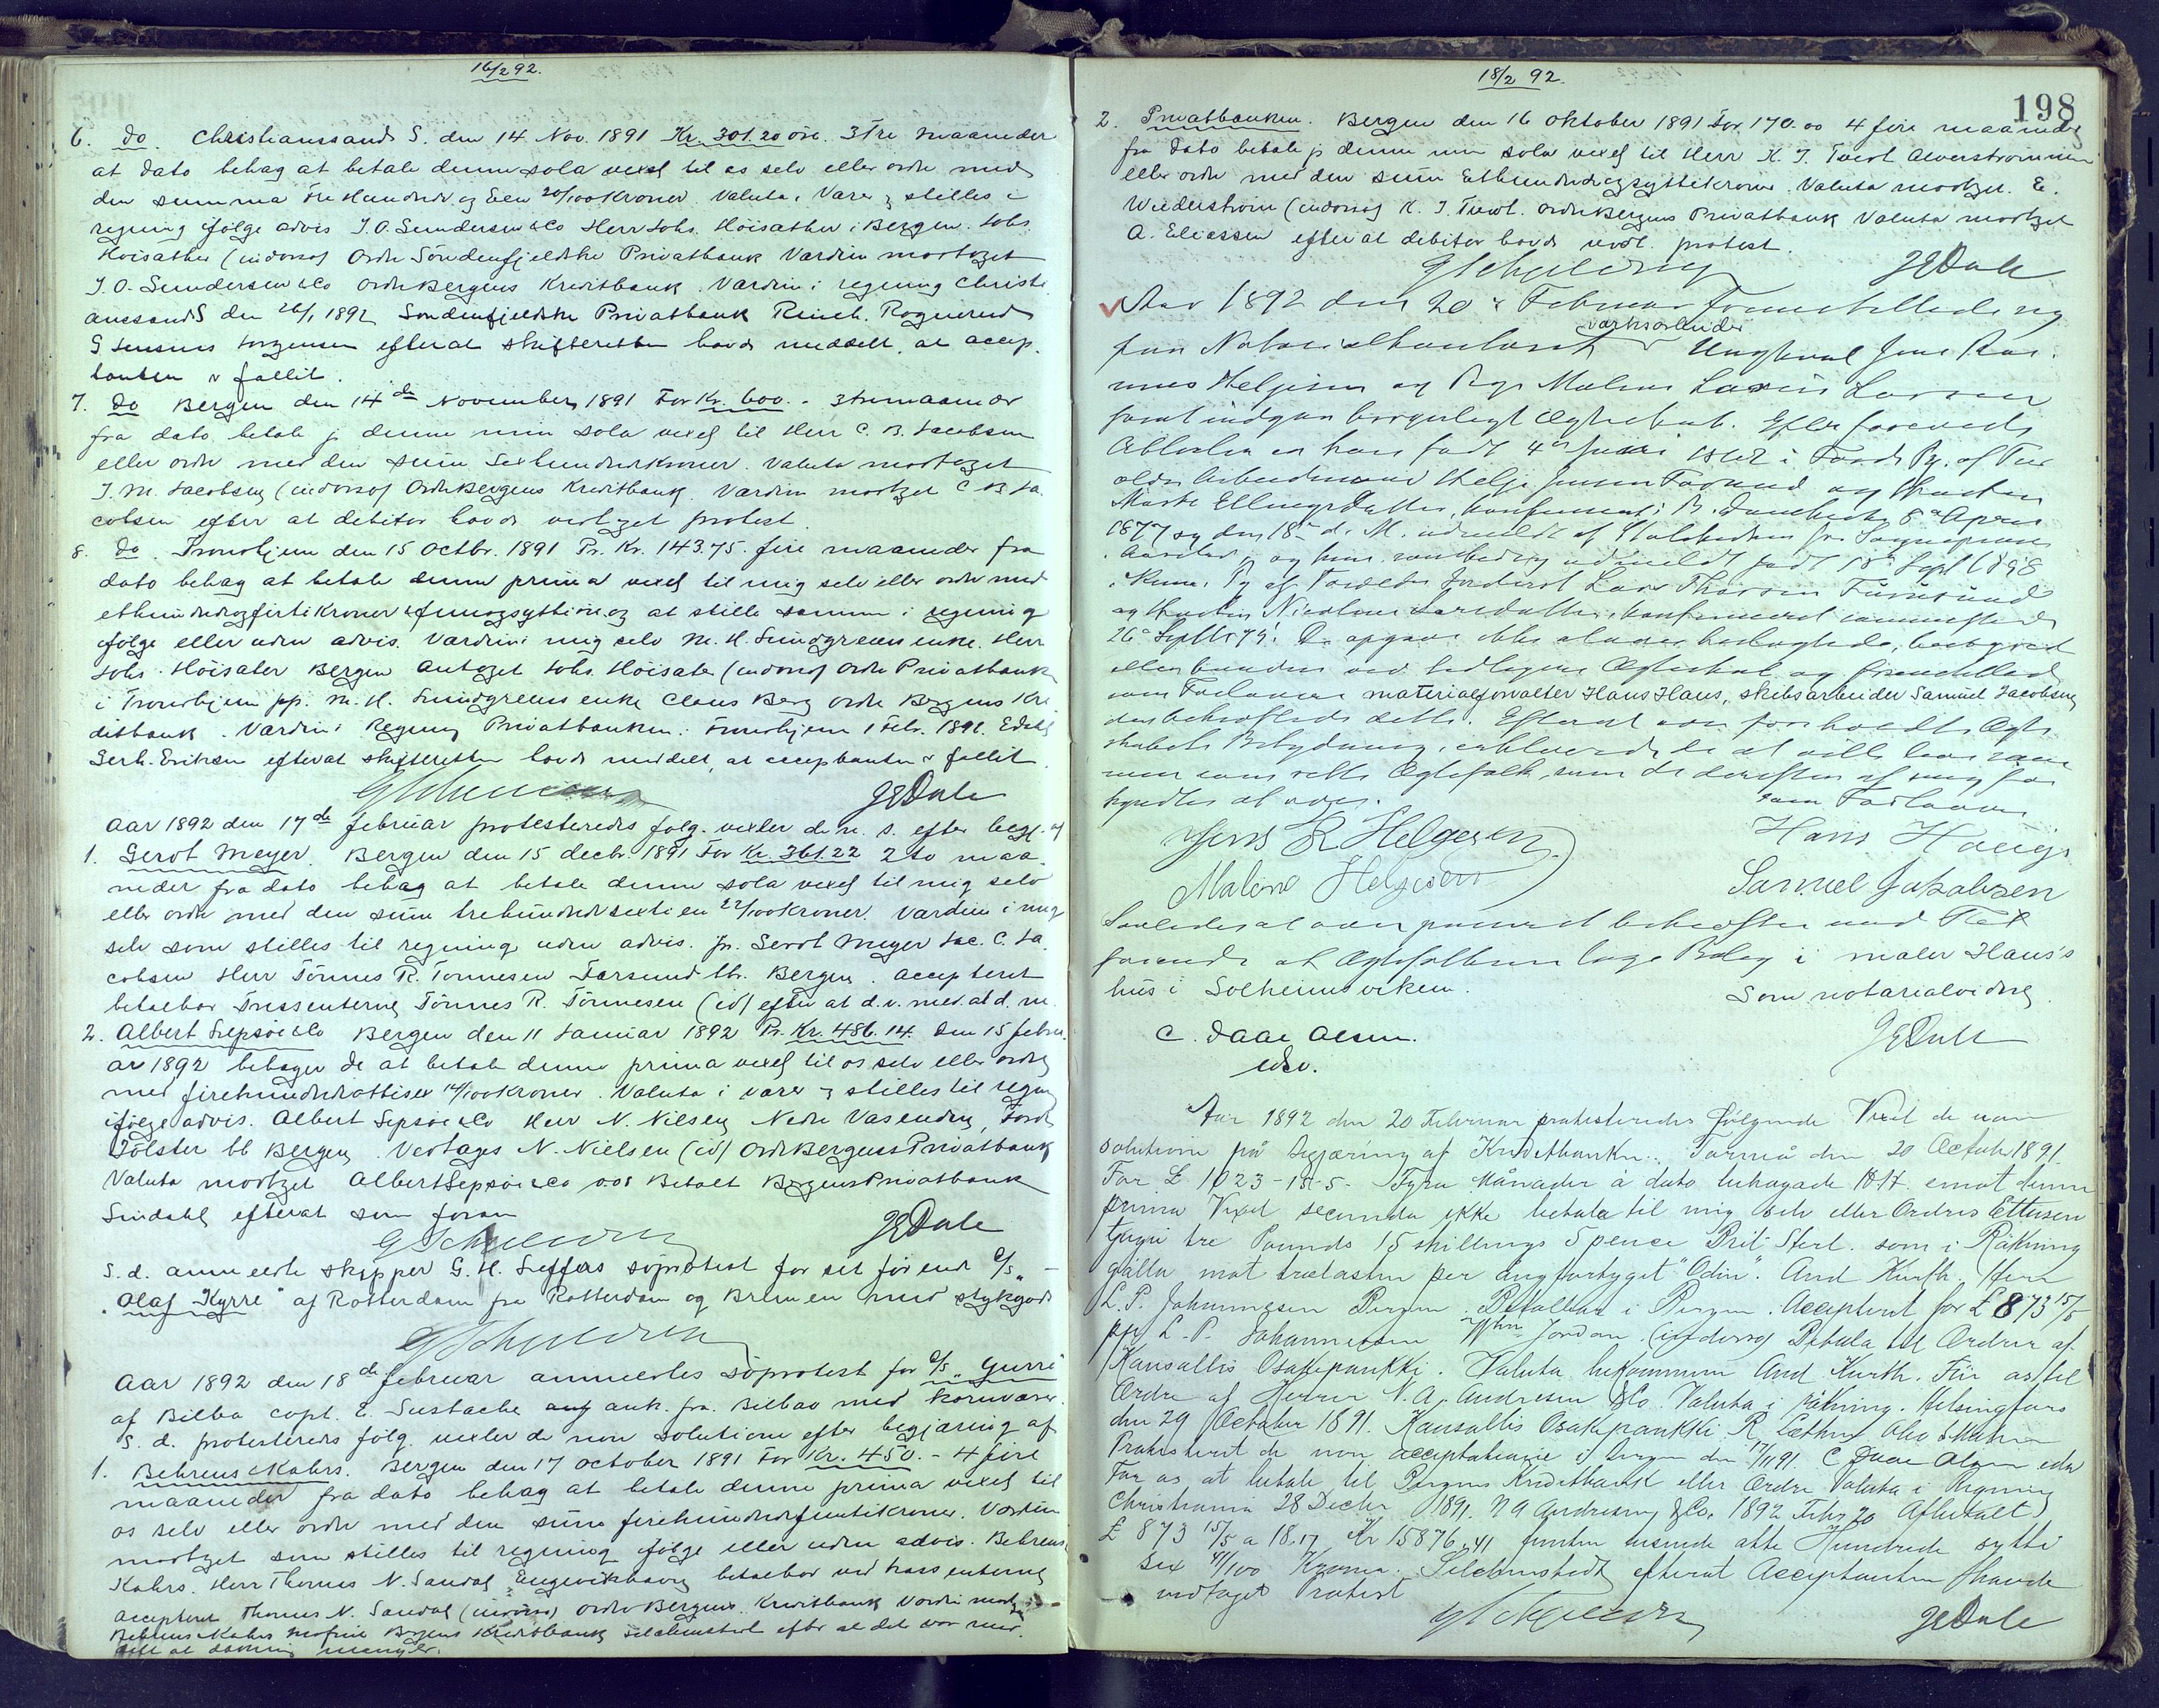 16/2 92.
6. do. Christianssand S. den 14 Nov. 1891 Kr. 301.20 öre 3 Tre maaneder
at dato behag at betale denne sola vexel til os selv eller ordre med
den summa Tre Hundrede og Een 20/100 Kroner. Valuta i Varer & stilles i
regning ifølge advis J. O. Gundersen & Co Herr Johs. Höisæther i Bergen. Johs
Höisæther (indorso) Ordre Söndenfjeldske Privatbank Værdien modtaget
J. O. Gundersen & Co Ordre Bergens Kreditbank. Værdien i regning Christi
anssand S den 26/1 1892 Søndenfjeldske Privatbank
efterat skifteretten havde meddelt, at accep
tanten er fallit.
7. do Bergen den 14de November 1891 For Kr. 600. - 3 tre maaneder
fra dato betale jeg denne min sola vexel til Herr C. B. Jacobsen
eller ordre med den sum Sexhundrede Kroner. Valuta modtaget
J. M. Jacobsen (indorso) Ordre Bergens Kreditbank. Værdien modtaget C B Ja
cobsen efter at debitor havde vedtaget protest.
8. do. Trondhjem den 15 Octbr. 1891 Pr. Kr. 143.75. fire maaneder fra
dato behag at betale denne prima vexel til mig selv eller ordre med
ethundredeogfirtitre Kroner & femogsytti öre og at stille samme i regning
ifølge eller uden advis. Værdien i mig selv M. H. Lundgreens enke. Herr
Johs. Höisæter Bergen Antaget Johs. Höisæter (indorso) Ordre Privatbanken
i Trondhjem pp. M. H. Lundgreens enke Claus Berg Ordre Bergens Kre
ditbank. Værdien i Regning Privatbanken i Trondhjem 1 Febr. 1892.
Gerh. Eriksen efterat skifteretten havde meddelt, at acceptanten er fallit.
JEDale
Aar 1892 den 17de februar protesteredes følg. vexler de n. s. efter begj. af
1. Gerdt Meyer. Bergen den 15 decbr. 1891 For Kr. 361.22 2 to maa
neder fra dato behag at betale denne sola vexel til mig selv
eller ordre med den sum trehundredesextien 22/100 Kroner. Værdien i mig
selv som stilles til regning uden advis. pr. Gerdt Meyer Jac. C. Ja
cobsen Herr Tönnes R. Tönnesen Farsund tbr. Bergen. Accepteret
betalbar Trassenterne Tönnes R. Tönnesen (id) efter at d. v. med. at d. m.
2. Albert Lepsøe & Co Bergen den 11 Januar 1892 Pr. Kr. 486.14. Den 15 febru
ar 1892 behager De at betale denne prima vexel til os selv eller ordre
med firehundredeottisex 14/100 Kroner. Valuta i varer & stilles til regning
ifølge advis. Albert Lepsøe & Co Herr N. Nilsen Nedre Vasenden, Førde
Jölster bb Bergen. Vedtages N. Nielsen (id) Ordre Bergens Privatbank
Valuta modtaget Albert Lepsøe & Co Betalt Bergens Privatbank
Lindahl efterat som foran
JEDale
S. d. anmeldte skipper G. H. söprotest for sit förende D/S
"Olaf Kyrre" af Rotterdam fra Rotterdam og Bremen med stykgods
Aar 1892 den 18de februar anmeldtes söprotest for D/S "Gurre"
af Bilbao capt. E. Sustache ank. fra Bilbao med kornvarer.
S. d. protesteredes følg. vexler de non solutione efter begjæring af
1. Behrens & Kahrs. Bergen den 17 October 1891 For Kr. 450. - 4 fire
maaneder fra dato behag at betale denne prima vexel til
os selv eller ordre med den sum firehundredefemti Kroner. Værdien
modtaget som stilles til regning ifølge eller uden advis. Behrens &
Kahrs. Herr Thomas N. Sandal, betalbar ved trassenterne
Accepteret Thomas N. Sandal (indorso) Ordre Bergens Kreditbank Værdien modtaget
Behrens & Kahrs Bergens Kreditbank efter at det var med
delt at dækning mangler.
18/2 92.
198
2. Privatbanken. Bergen den 16 Oktober 1891 For 170.00 4 fire maaneder
fra dato betale jeg denne min sola vexel til Herr K. J. Alverströmmen
eller ordre med den sum Ethundredeogsyttikroner. Valuta modtaget. E.
Wiederström (indorso) K. J. Ordre Bergens Privatbank Valuta modtaget
A. Eliassen efterat debitor havde vedt. protest.
JEDale
Aar 1892 den 20de Februar fremstillede sig
værksarbeider
for Notarialkontoret Ungkarl Jens Ras
mus Helgesen og Pige Malene Larsen
for at indgaa borgerligt Ægteskab. Efter foreviste
Attester er han født 4de 1862 i Førde Pg. af For
ældre Arbeidsmand Helge Jensen og Hustru
Marte Ellingsdatter, konfirmeret i B. Domkirke 8de April
1877 og den 18de d. M. udmeldt af Statskirken for Sognepræsten
i Aarstad, og hun født 18de Sept
og Hustru Nicoline Larsdatter, konfirmeret
26de Septbr 79. De opgave ikke at være beslægtede, besvogrede
eller bundne ved tidligere Ægteskab og fremstillede
som Forlovere materialforvalter Hans Haus, skibsarbeider Samuel Jacobsen
der bekræftede dette. Efterat være foreholdt Ægte
skabets Betydning, erklærede de at ville leve sam
men som rette Ægtefolk, som de derefter af mig for
kyndtes at være.
som Forlovere
Jens R Helgesen
Hans Haugs
Malene Helgesen
Samuel Jakobsen
Saaledes at være passeret bekræftes med Til
føiende at Ægtefolkene tage Bolig i maler Haus's
hus i Solheimsviken.
Som notarialvidne
C. Daae Olsen.
edsv.
JEDale
Aar 1892 den 20 Februar protesteredes følgende Vexel de non
solutione på begjæring af Kreditbanken. Torneå den 20 October 1891.
For £ 1023-15-5. Fyra Månader à dato behagade H. H. emot denna
prima Vexel secunda ikke betala til mig selv eller Ordres Ettusen
tjugu tre Pounds 15 skillings 5 pence Brit. Sterl. som i Räkning
gälla mot trælasten per ångfartyget "Odin". And Kurth. Herr
L. P. Johannesen Bergen. Betalbar i Bergen. Accepteret for £ 873 15/5
pp. L. P. Johannesen Whm Jordan (indorso) Betala til Ordres af
Kansallis Osakepankki. Valuta bekommen And Kurth. För os til
Ordre af Herrer N. A. Andresen & Co. Valuta i räkning. Helsingfors
den 29 October 1891. Kansallis Osakepankki
Protesteret de non acceptatione i Bergen den 17/11 91. C Daae Olsen edsv
For os at betale til Bergens Kreditbank eller Ordre Valuta i Regning
Christiania 28 Decbr 1891. N A Andresen & Co. 1892 Febr 20 Afbetalt
£ 873 15/5 a 18.17 Kr 15876,41 femten tusinde otte Hundrede sytti
sex 41/100 Kroner. efterat Acceptanten havde
vedtaget Protest
JEDale